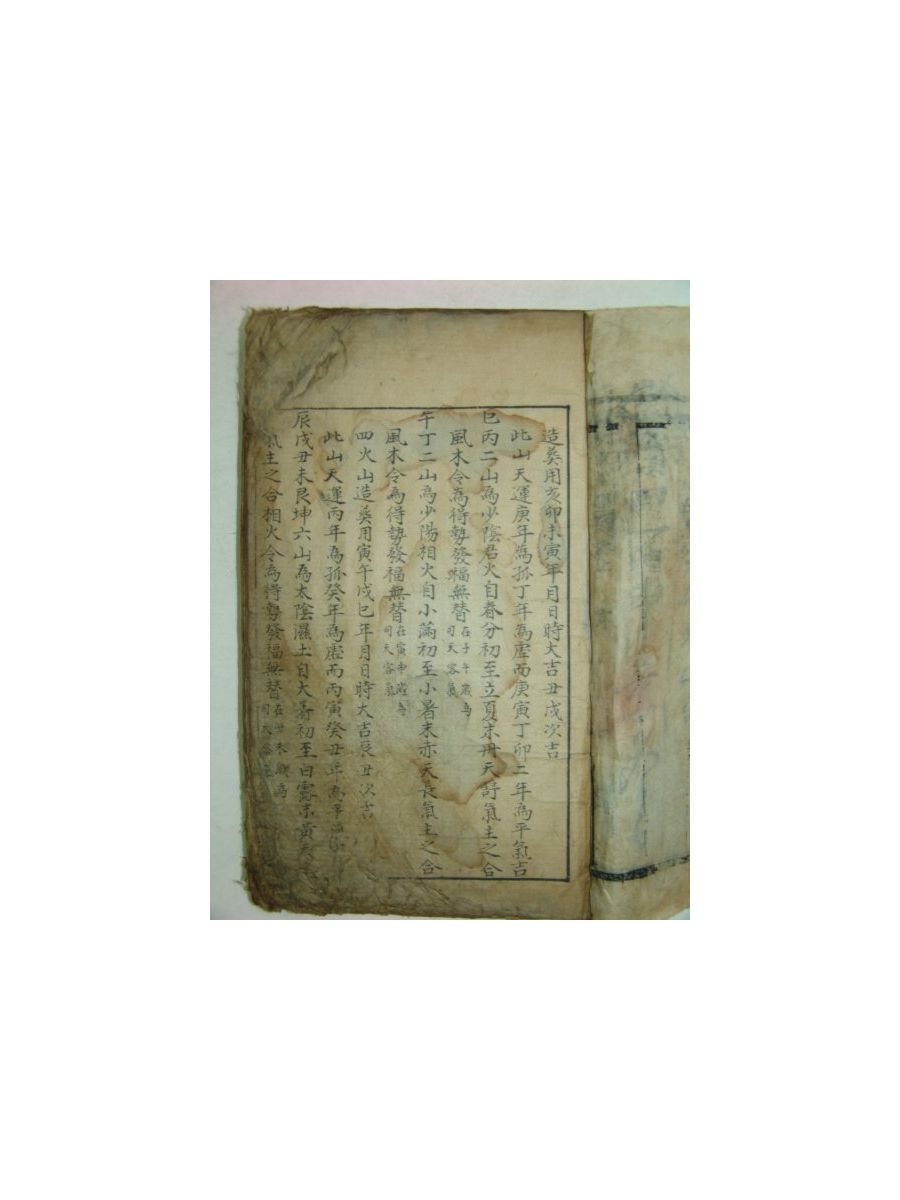 造葬用亥卯未寅年月日時大吉丑戌次吉
此山天運庚年為孤丁年為虛而庚寅丁卯二年為平氣吉
巳丙二山為少陰君火自春分初至立夏末丹天舒氣主之合
風木令為得勢發福無替在子午歲為司天客氣
午丁二山為少陽相火自小滿初至小暑末赤天長氣主之合
風木令為得勢發福無替在寅申歲為司天客氣
四火山造葬用寅午戌巳年月日時大吉辰丑次吉
此山天運丙年為孤癸年為虛而丙寅癸丑年為平
辰戌丑未艮坤六山為太陰濕土自大暑初至白露末黃天
氣主之合相火令為得勢發福無替在丑未歲為司天客